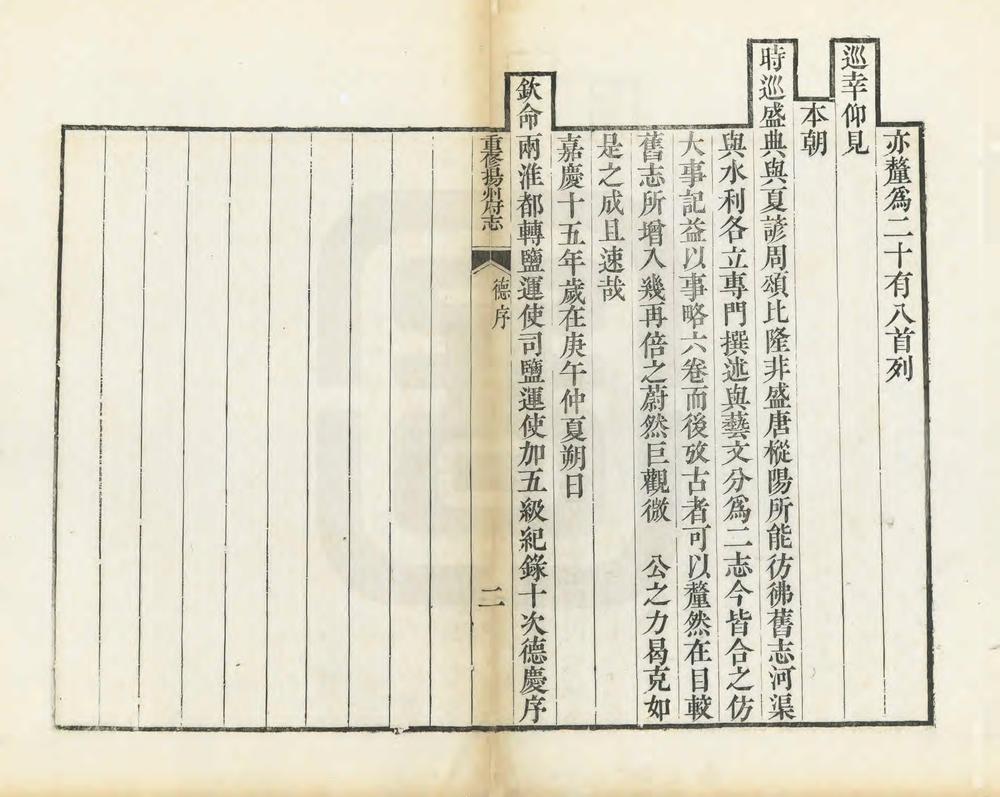 亦釐爲二十有八首列
巡幸仰見
本朝
時巡盛典與夏諺周頌比隆非盛唐樅陽所能彷彿舊志河渠
與水利各立專門撰述與藝文分爲二志今皆合之仿
大事記益以事略六卷而後攷古者可以釐然在目較
舊志所增入幾再倍之蔚然巨觀微 公之力曷克如
是之成且速哉
嘉慶十五年歲在庚午仲夏朔日
欽命兩淮都轉鹽運使司鹽運使加五級紀錄十次德慶序
重修揚州府志 德序 二